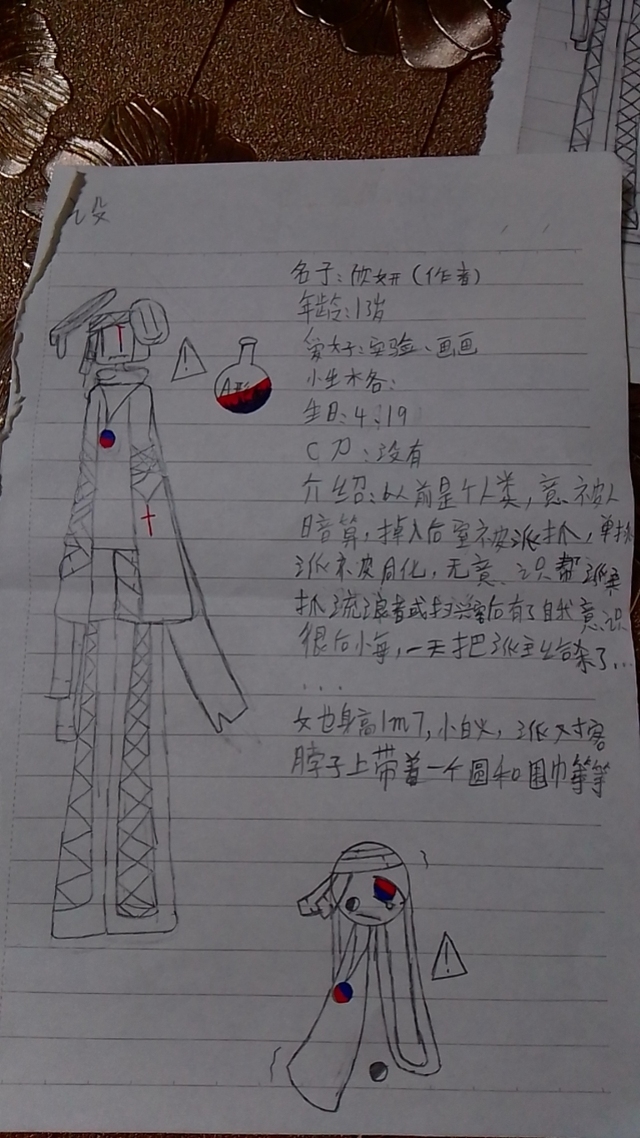 设
名子：欣妍（作者）
年龄：13岁
爱好：实验、画画
小生木各：
生日：4，19
C刀：没有
介绍：以前是个人类，意被人
暗算，掉入后室被派抓，单
派系皮同化，无意识帮派
抓流浪者或扫兴客后有了自我意识
很后悔，一天把派主给杀了…
...
女也身高1m7，小白，派对客
脖子上带着一个圆和围巾等等
A形
!
!